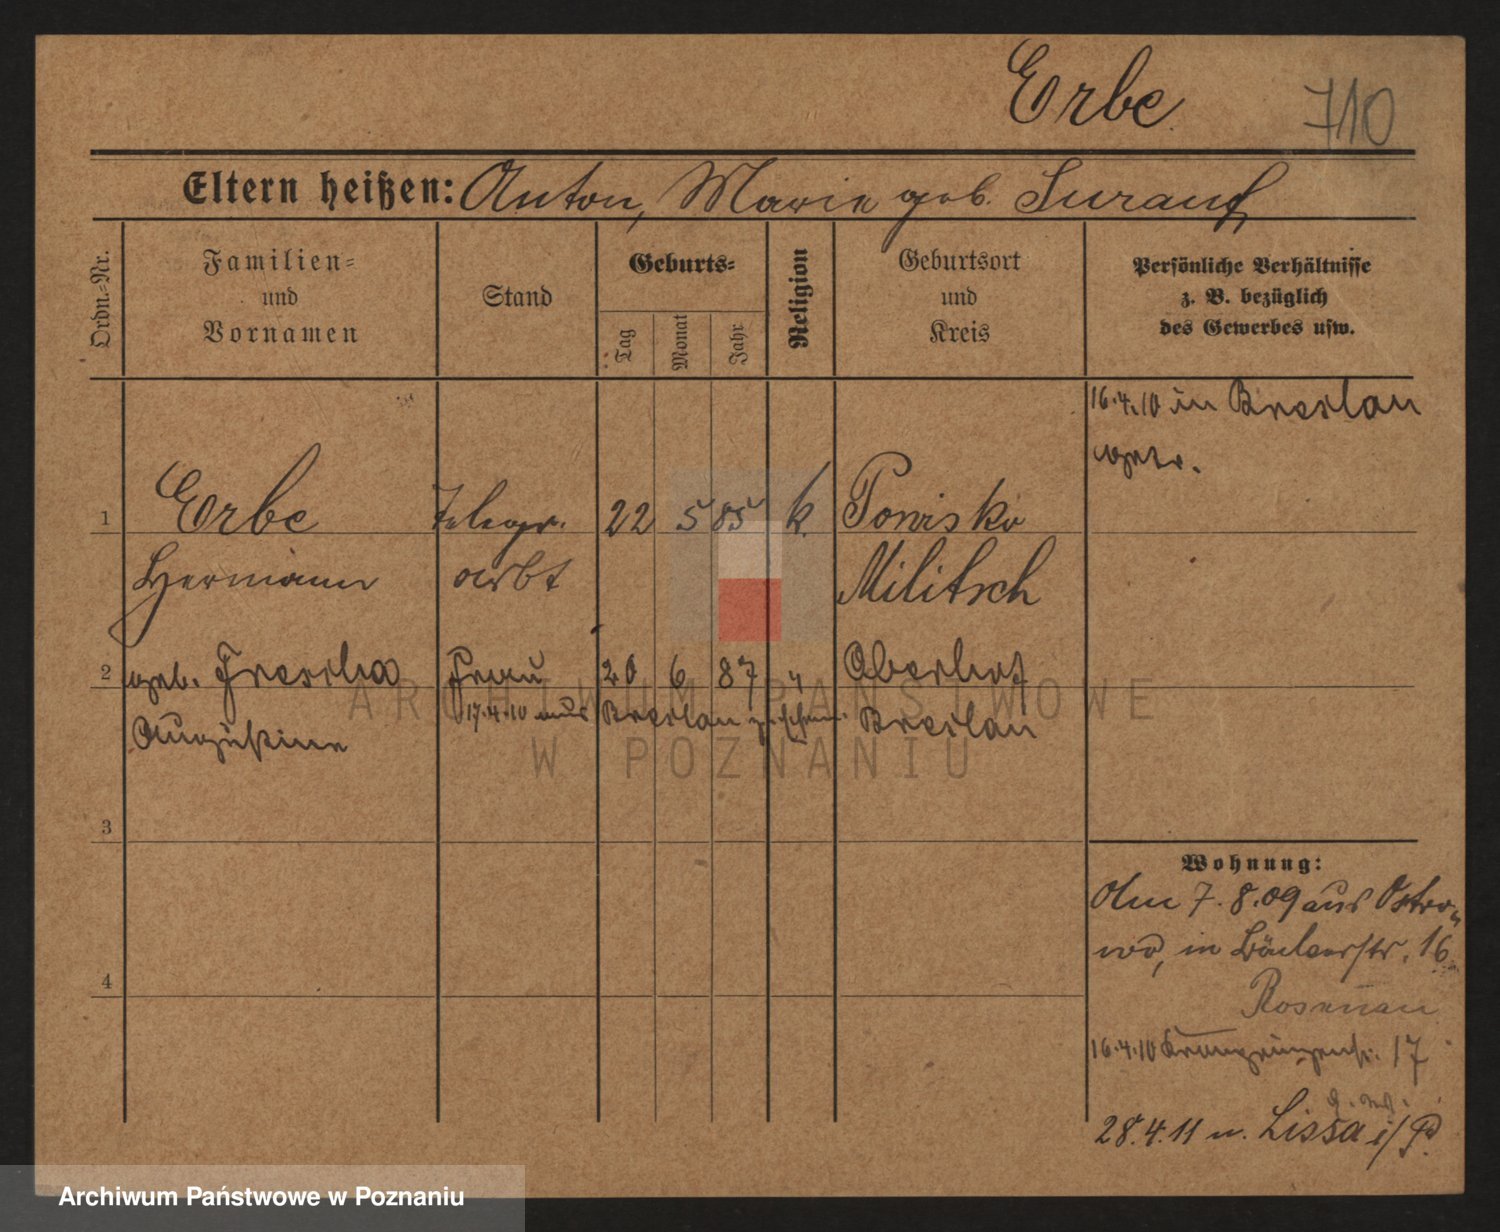 Erbe 710
Eltern heißen: Anton, Marie geb. Surauf
Ordn.-Nr.
Familien-
und
Vornamen
Stand
Geburts-
Tag
Monat
Jahr
Religion
Geburtsort
und
Kreis
Persönliche Verhältnisse
z. B. bezüglich
des Gewerbes usw.
16.4.10 in Breslau
getr.
1 Erbe Telegr. 22 5 85 k. Powisko
Hermann arbt Militsch
2 geb. Fresska Frau 20 6 87 " Oberhof
17.4.10 aus Breslau
Augustine Breslau
3
4
Wohnung:
Am 7.8.09 aus Ostro-
wo, in Bäckerstr. 16
Rosenau
16.4.10 17
28.4.11 n. Lissa i/P.
ARCHIWUM PAŃSTWOWE
W POZNANIU
Archiwum Państwowe w Poznaniu